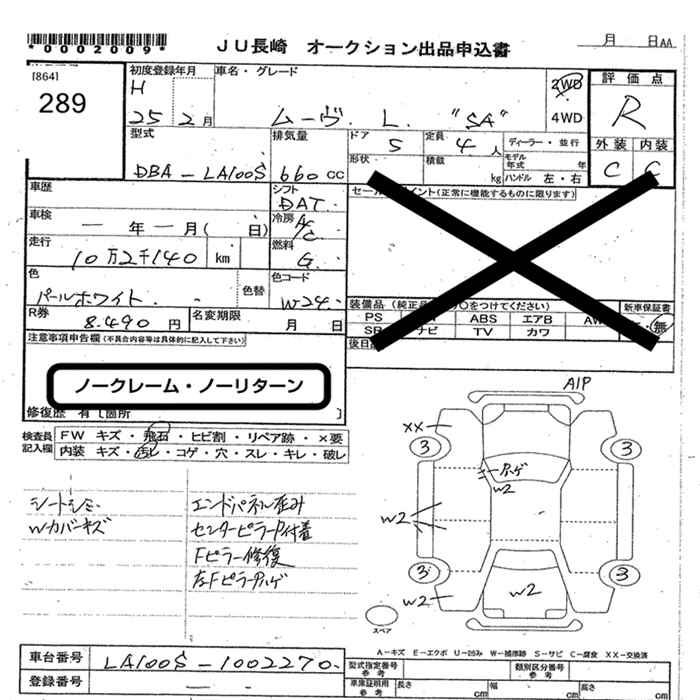 *0002009*
JU長崎 オークション出品申込書
月 日AA
[864]
289
初度登録年月
H
25 2月
車名・グレード
ムーヴ. L. "SA"
2WD
4WD
評価点
R
外装 内装
C C
型式
DBA-LA100S
排気量
660 CC
ドア
5
定員
4 人
ディーラー・並行
形状
積載
kg
モデル
年式 年
ハンドル 左・右
車歴
シフト
DAT.
セールスポイント(正常に機能するものに限ります)
車検
ー 年 ー 月( 日)
冷房
A/C
走行
10万2千140 km
燃料
G.
色
パールホワイト.
色替
色コード
W24.
装備品
新車保証書
PS
ABS エアB
ナビ TV カワ
無
R券
8.490 円
名変期限
月 日
注意事項申告欄(不具合内容等は具体的に記入して下さい)
ノークレーム・ノーリターン
修復歴 有 [箇所 ]
検査員
記入欄
FW キズ・飛石・ヒビ割・リペア跡・×要
内装 キズ・汚レ・コゲ・穴・スレ・キレ・破レ
シートシミ
Wカバーキズ
エンドパネル歪み
センターピラーP付着
Fピラー修復
左Fピラーハゲ
A1P
XX
3
3
ハゲ
W2
W2
3
3
W2
W2
スペア
A-キズ E-エクボ U-凹み W-補修跡 S-サビ C-腐食 XX-交換済
車台番号
LA100S-1002270.
登録番号
型式指定番号
参考
類別区分番号
参考
車庫証明用
参考
長さ
cm
幅
cm
高さ
cm